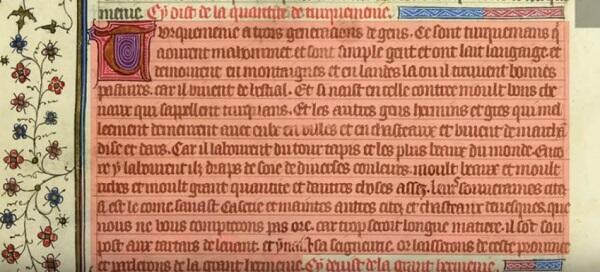 menie. Cy dist de la quantite de turquemenie.
Turquemenie a trois generacions de gens. Ce sont turquemans qui
aourent mahommet et sont simple gent et ont lait langaige. et
demourent en montaignes et en landes la ou il treuvent bonnes
pastures. car il vivent de bestial. Et si naist en celle contree moult bons che
vaux qui sappellent turquans. Et les autres gens hermins et gres qui mel
leement demeurent avec eulx en villes et en chasteaux et vivent de marchã
dise et dars. Car il labourent du tour tapis et les plus beaux du monde. Enco
re y labourent ilz draps de soie de diverses couleurs. moult beaux et moult
riches et moult grant quantite et dautres choses assez. leurs souveraines cites
si est le come savast Caserie et maintes autres citez et chasteaux evesques. que
nous ne vous compterons pas ore. car trop seroit longue matiere. il sõt sou
post aux tartars de levant. et y sa seigneurie. or laisserons de ceste province
et parlerons de la grant hermenie. Cy devise de la grant hermenie.